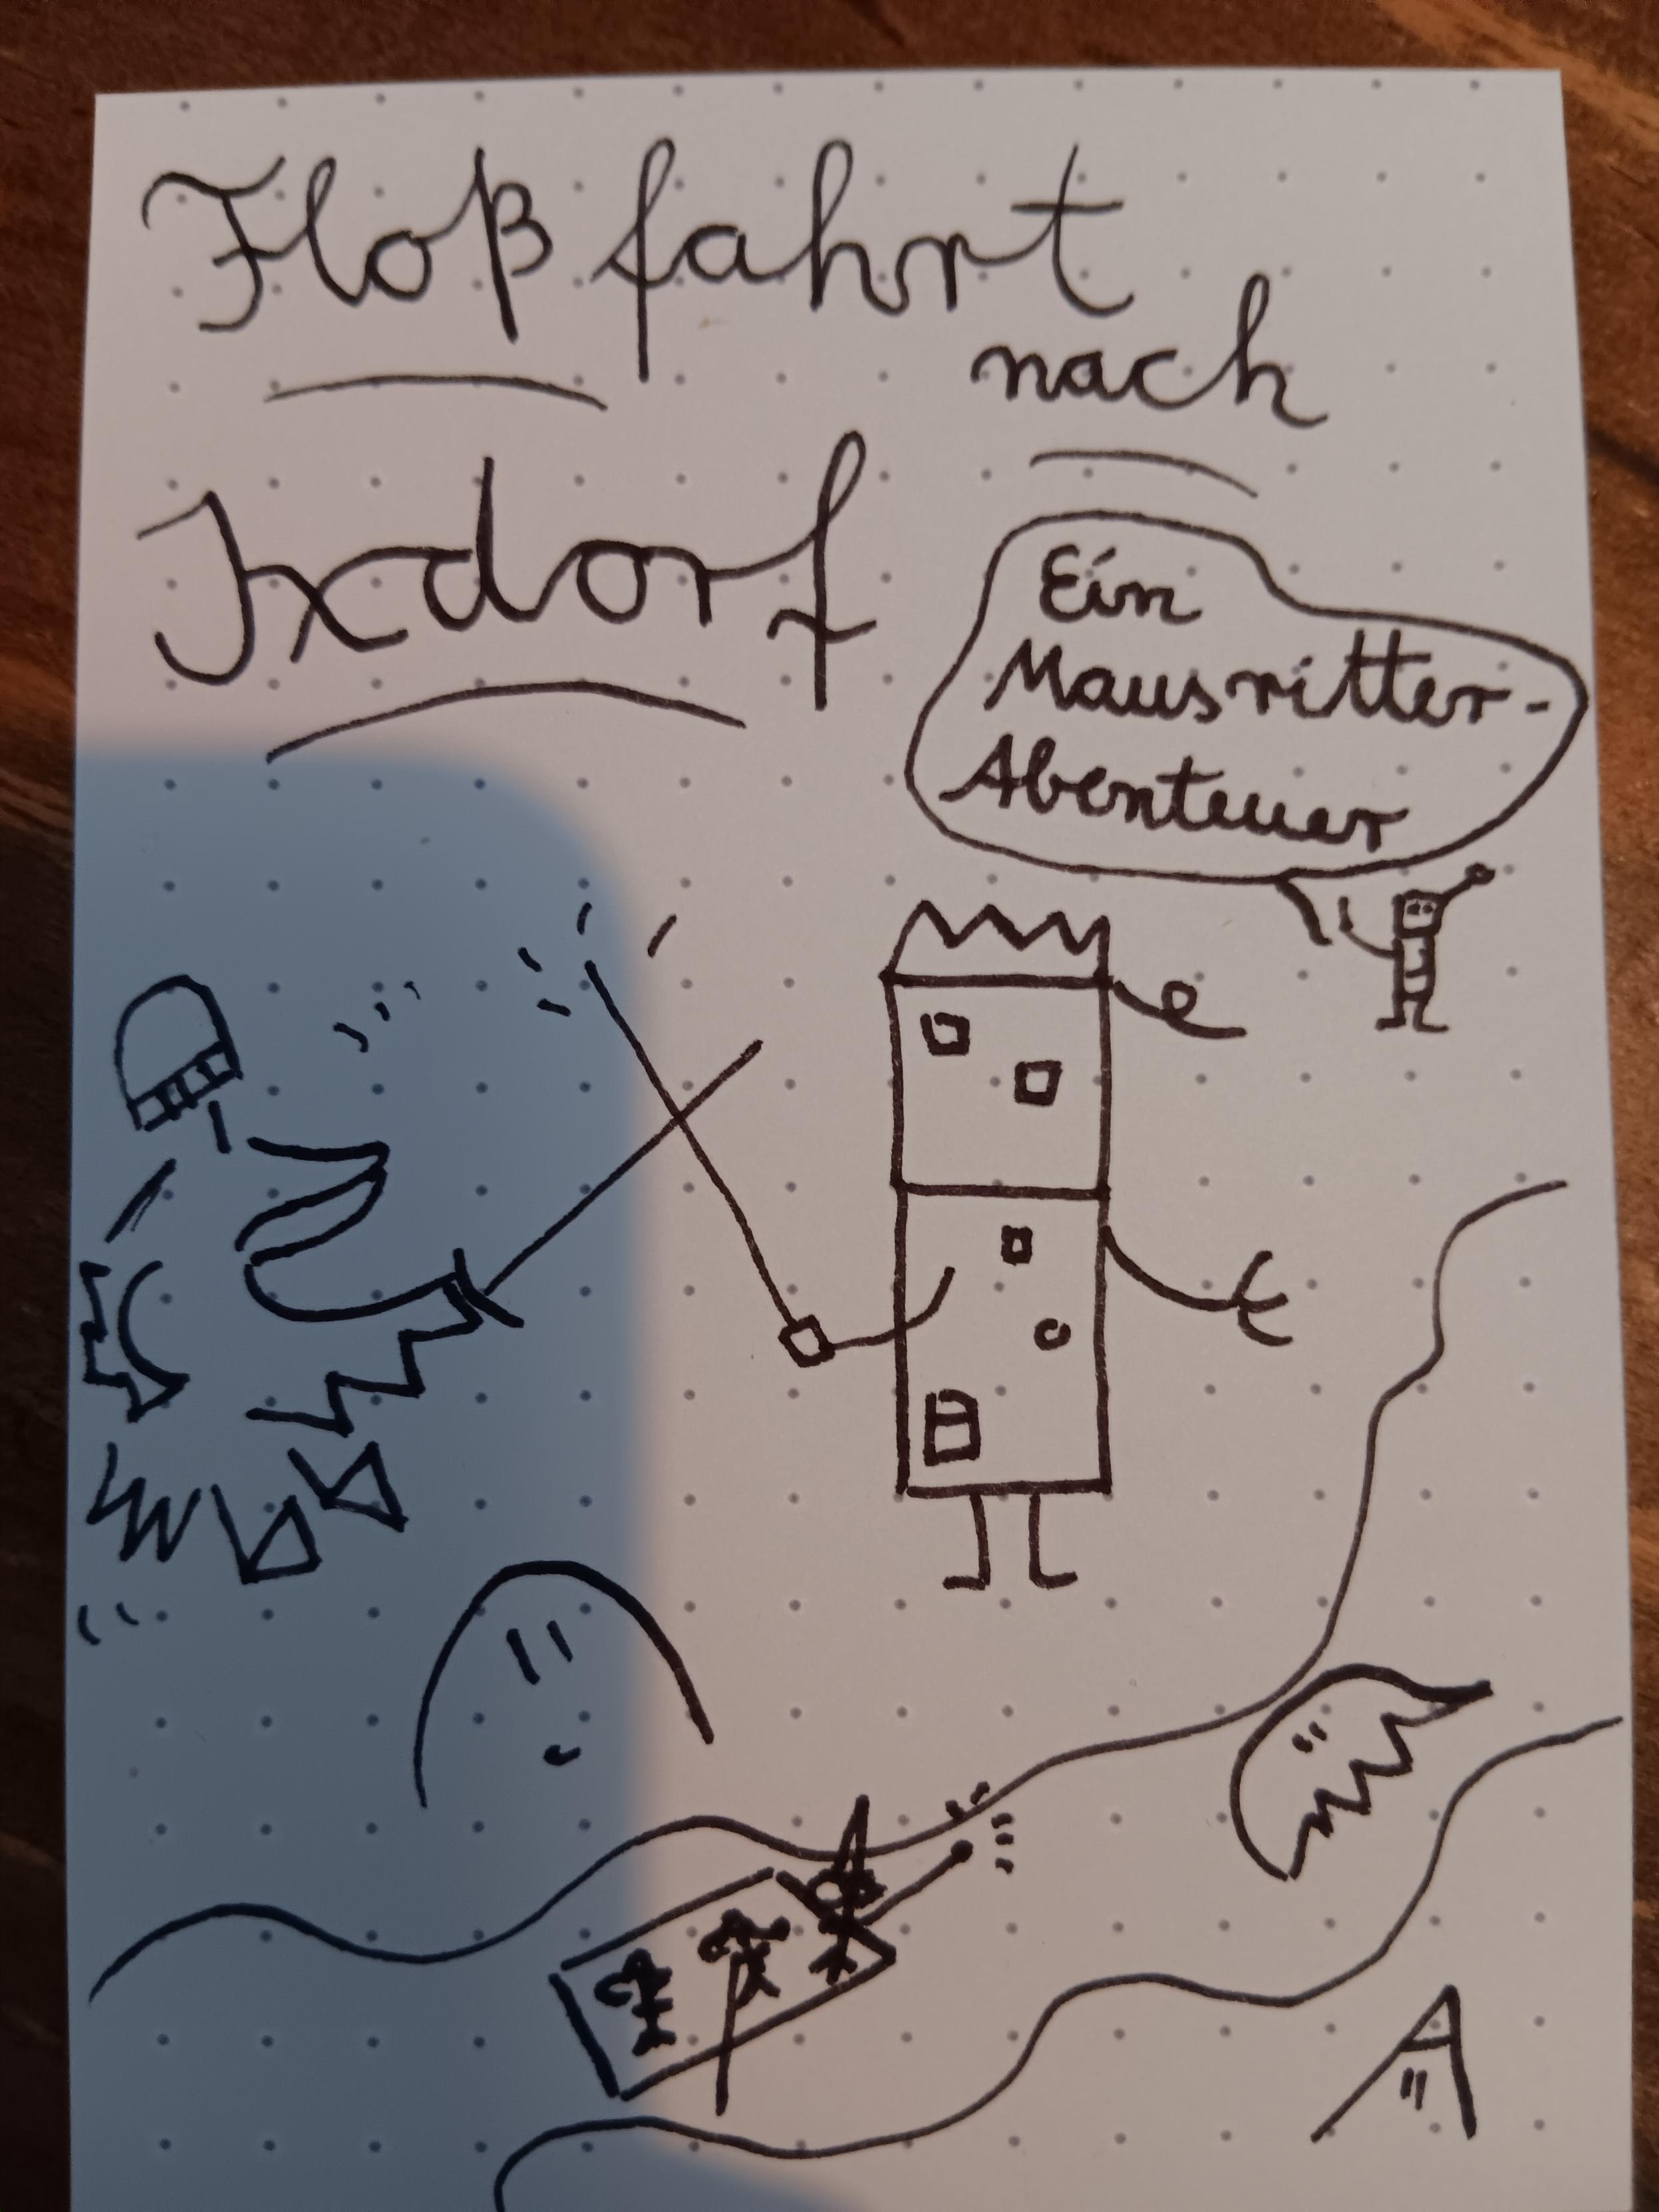 Floßfahrt
nach
Ixdorf
Ein
Mausritter-
Abenteuer